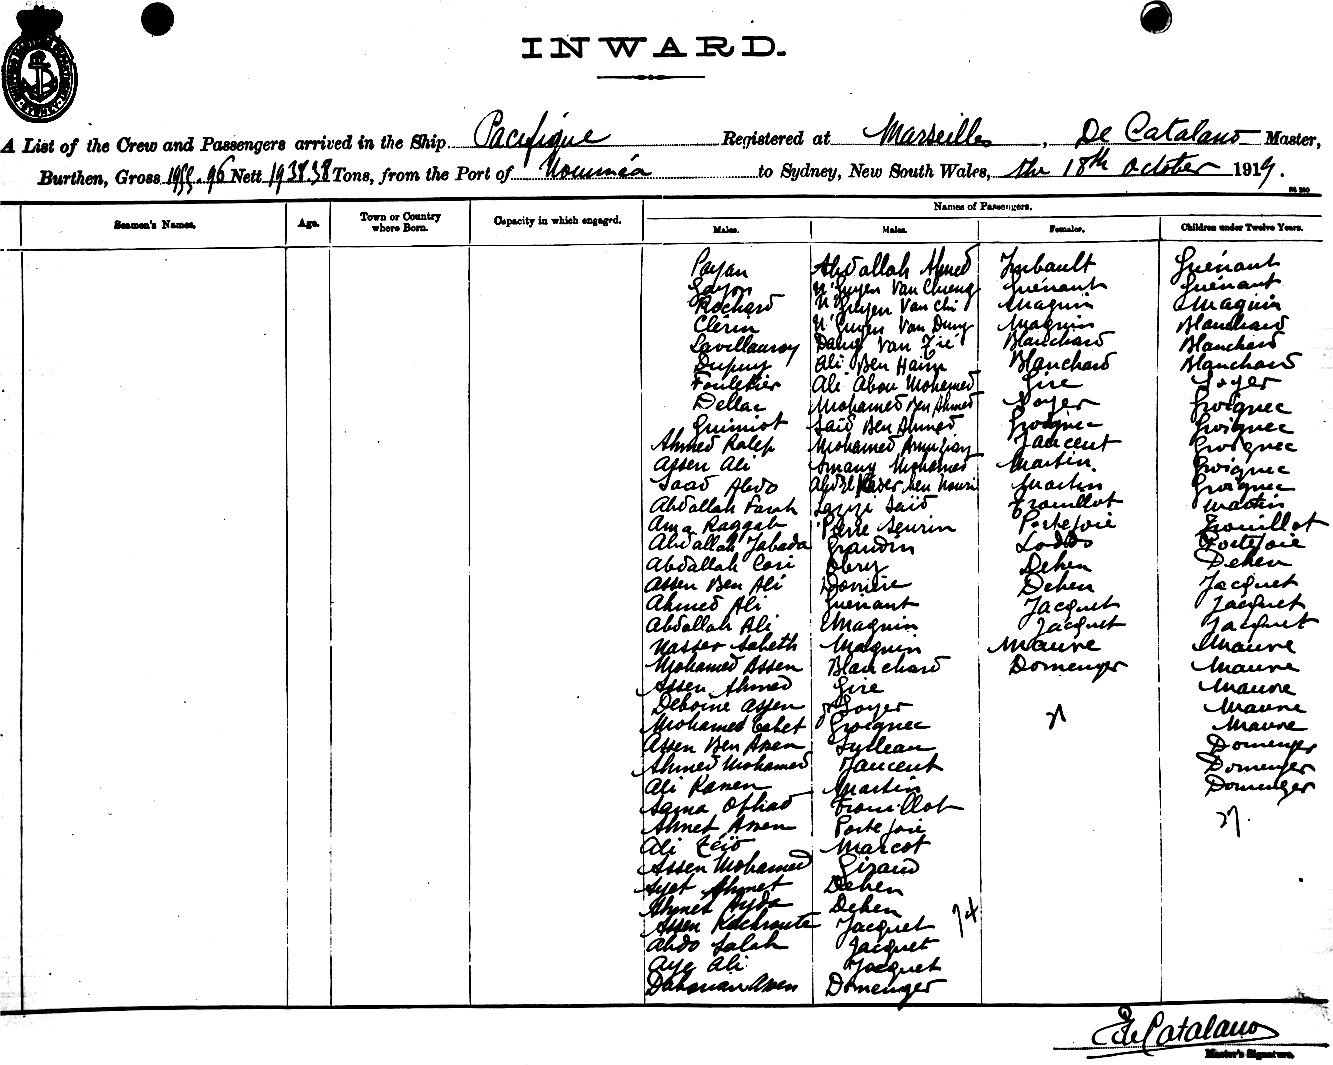 INWARD.
A List of the Crew and Passengers arrived in the Ship Pacifique Registered at Marseilles, De Catalano Master,
Burthen, Gross Nett 1938.38 Tons, from the Port of Nouméa to Sydney, New South Wales, the 18th October 1919.
Names of Passengers.
Seamen's Names. Age. Town or Country where Born. Capacity in which engaged. Males. Males. Females. Children under Twelve Years.
Payan Abdallah Ahmed Imbault Guénant
Gayon N'Guyen Van Chieng Guénant Guénant
Rochard N'Guyen Van Chi Maquin Maquin
Clérin N'Guyen Van Dung Maquin Blanchard
Lavillauroy Dang Van Tié Blanchard Blanchard
Dupuy Ali Ben Haim Blanchard Blanchard
Ali Abou Mohamed Gire Soyer
Dellac Mohamed Ben Ahmed Soyer Groignec
Guiniot Said Ben Ahmed Groignec Groignec
Ahmed Raleb Mohamed Jaucent Groignec
Assen Ali Amany Mohamed Martin Groignec
Saad Abdo Abdel Kader ben Nouri Martin Groignec
Abdallah Farih Saïd Trouillot Martin
Ama Raggab Pierre Seurin Portejoie Trouillot
Abdallah Jabada Grandin Loddo Portejoie
Abdallah Cori Obry Dehen Dehen
Assen Ben Ali Domièie Dehen Jacquet
Ahmed Ali Guénant Jacquet Jacquet
Abdallah Ali Maquin Jacquet Jacquet
Nasser Saheth Maquin Mauve Mauve
Mohamed Assen Blanchard Domenger Mauve
Assen Ahmed Gire Mauve
Deboine Assen Soyer 21 Mauve
Mohamed Cahet Groignec Mauve
Assen Ben Assen Sylleau Domenger
Ahmed Mohamed Jaucent Domenger
Ali Ramen Martin Domenger
Sama Trouillot
Ahmet Amen Portejoie 27.
Ali Zeïd Marcot
Assen Mohamed Giraud
Ayet Ahmet Dehen
Ahmet Ayda Dehen 74
Assen Kachroute Jacquet
Abdo Salah Jacquet
Aye Ali Jacquet
Dahman Amen Domenger
E de Catalano
Master's Signature.